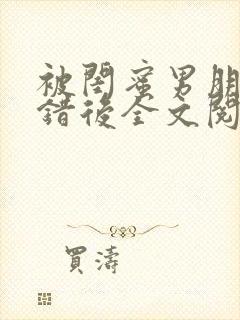 被閨蜜男朋
錯後全文閱
買濤